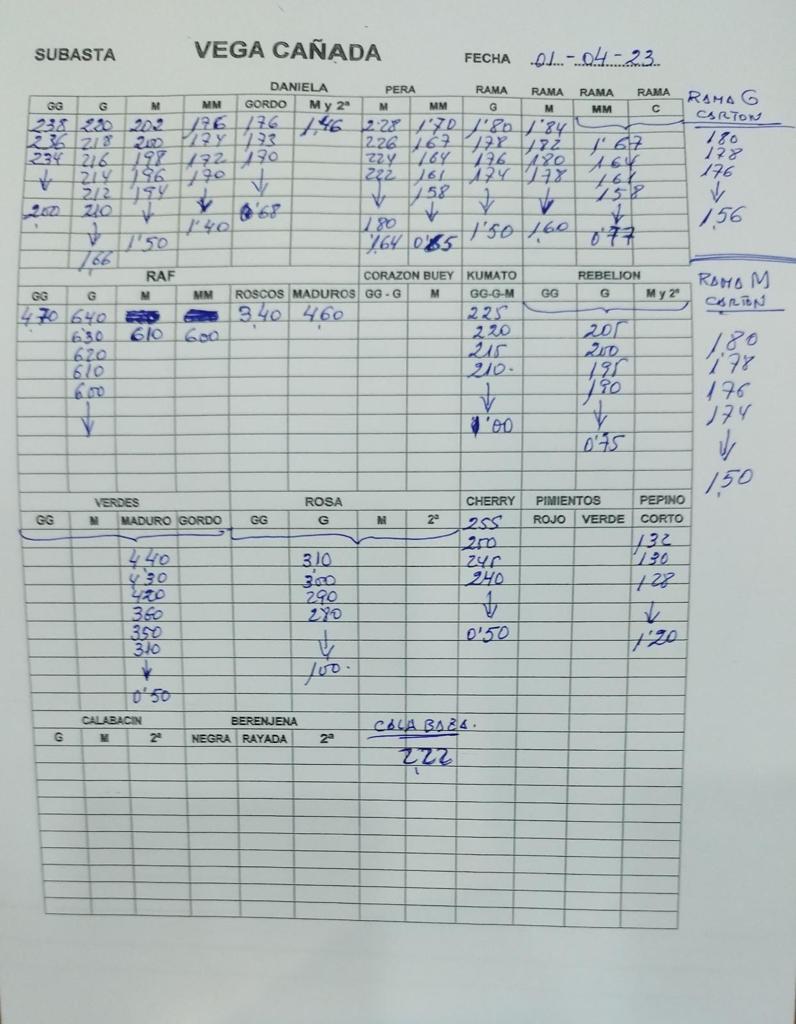 SUBASTA VEGA CAÑADA FECHA 01-04-23
DANIELA PERA RAMA RAMA RAMA RAMA RAMA G
GG G M MM GORDO M y 2ª M MM G M MM C CARTON
238 220 202 176 176 1,46 228 1'70 1'80 1'84 180
236 218 200 174 173 226 167 178 182 1'67 178
234 216 198 172 170 224 164 176 180 164 176
↓ 214 196 170 ↓ 222 161 174 178 161 ↓
212 194 ↓ ↓ 158 ↓ ↓ 158 1,56
200 210 ↓ 1'40 68 180 ↓ 1'50 1,60 ↓
↓ 1'50 1,64 0'77
1,66
RAF CORAZON BUEY KUMATO REBELION RAMA M
GG G M MM ROSCOS MADUROS GG - G M GG-G-M GG G M y 2ª CARTON
4,70 640 3,40 4,60 225
630 610 600 220 205 1,80
620 215 200 1,78
610 210. 195 176
600 ↓ 190 174
↓ 1'00 ↓ ↓
0'75 1,50
VERDES ROSA CHERRY PIMIENTOS PEPINO
GG M MADURO GORDO GG G M 2ª 255 ROJO VERDE CORTO
250 132
440 310 245 130
430 300 240 128
420 290 ↓ ↓
360 280 0'50 1'20
350 ↓
310 1,00.
↓
0'50
CALABACIN BERENJENA CALABAZA.
G M 2ª NEGRA RAYADA 2ª 2,22